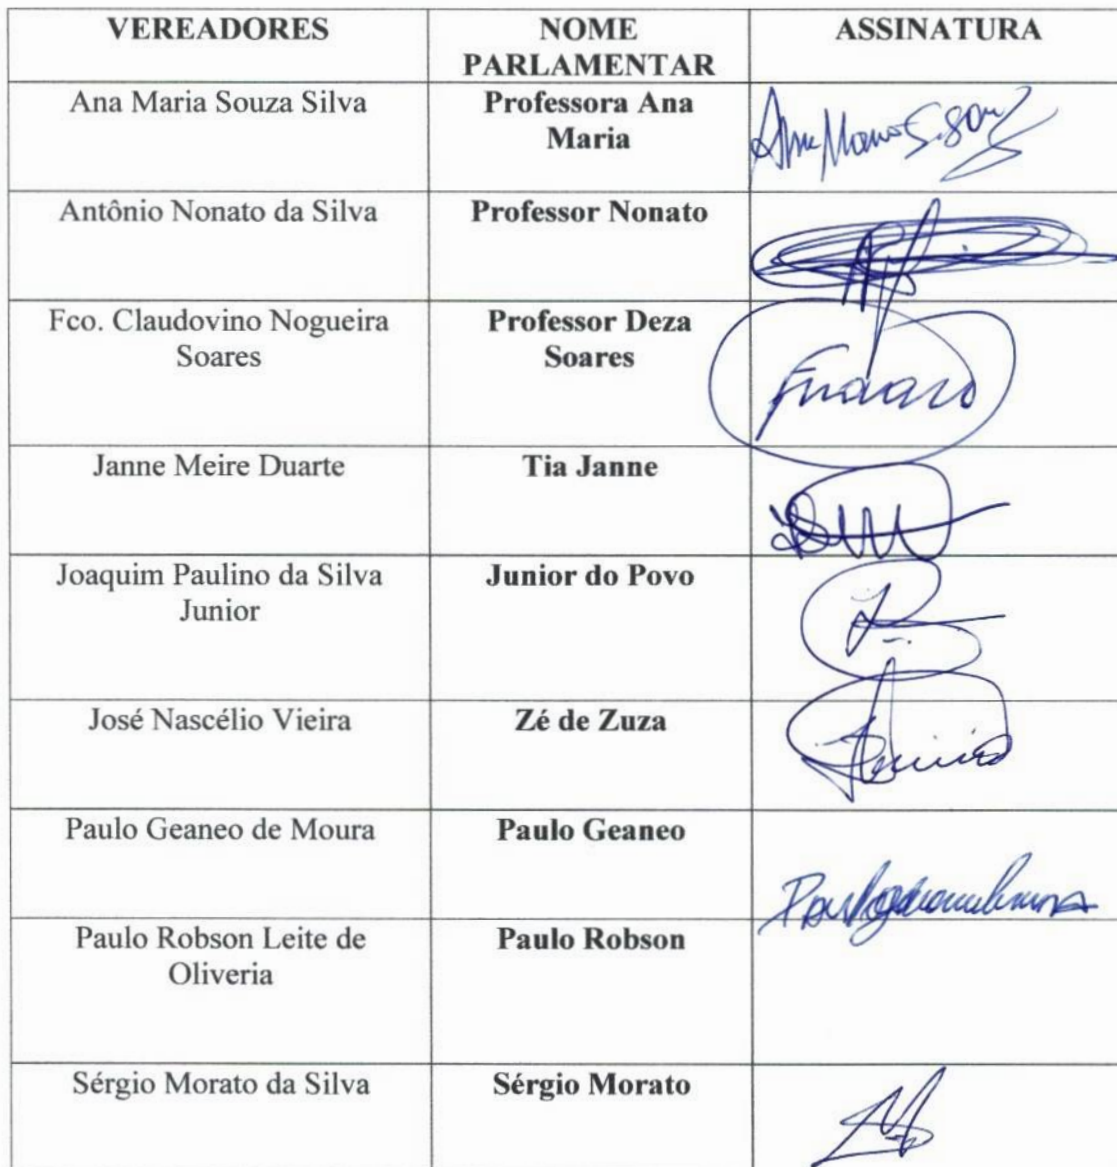 VEREADORES
NOME
PARLAMENTAR
ASSINATURA
Ana Maria Souza Silva
Professora Ana
Maria
Antônio Nonato da Silva
Professor Nonato
Fco. Claudovino Nogueira
Soares
Professor Deza
Soares
Janne Meire Duarte
Tia Janne
Joaquim Paulino da Silva
Junior
Junior do Povo
José Nascélio Vieira
Zé de Zuza
Paulo Geaneo de Moura
Paulo Geaneo
Paulo Robson Leite de
Oliveria
Paulo Robson
Sérgio Morato da Silva
Sérgio Morato